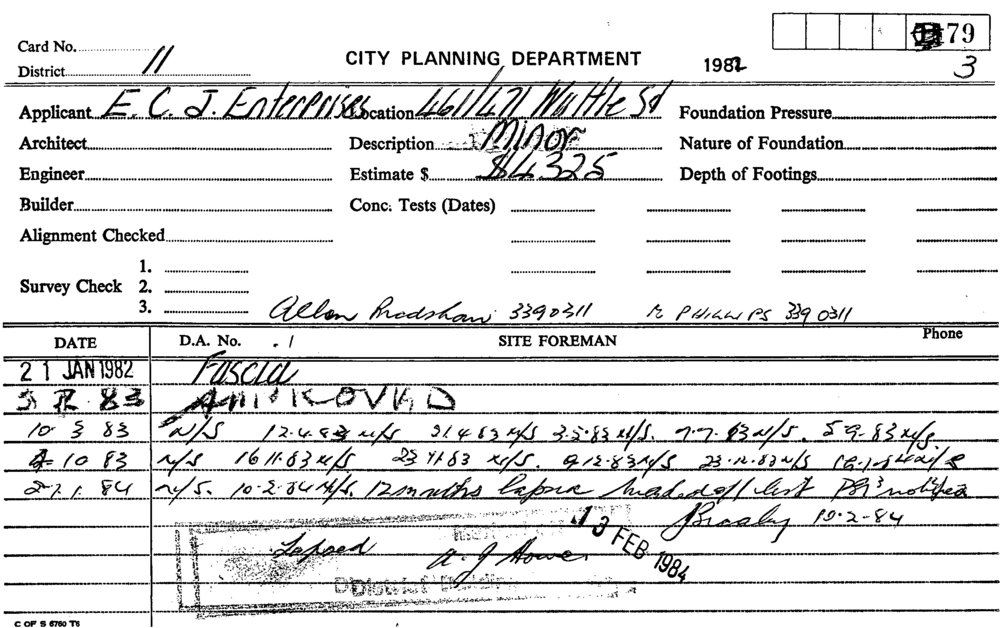 79
Card No.
District 11
CITY PLANNING DEPARTMENT 1982
3
Applicant E. C. J. Enterprises Location 461/471 Wattle St Foundation Pressure
Architect Description MINOR Nature of Foundation
Engineer Estimate $ $4325 Depth of Footings
Builder Conc. Tests (Dates)
Alignment Checked
1.
Survey Check 2.
3.
Allan Bradshaw 3390311 PHILLIPS 339 0311
DATE D.A. No. SITE FOREMAN Phone
21 JAN 1982 Fascia
83 APPROVED
10 3 83 N/S 12.4.83 N/S 21.4.83 N/S 3.5.83 N/S. 7.7.83 N/S. 5.9.83 N/S
10 83 N/S 16 11.83 N/S 23 11.83 N/S. 9.12.83 N/S 23.12.83 N/S
27.1.84 N/S. 10.2.84 N/S. 12 months lapse list notified
10-2-84
13 FEB 1984
Lapsed
C OF S 6760 T6